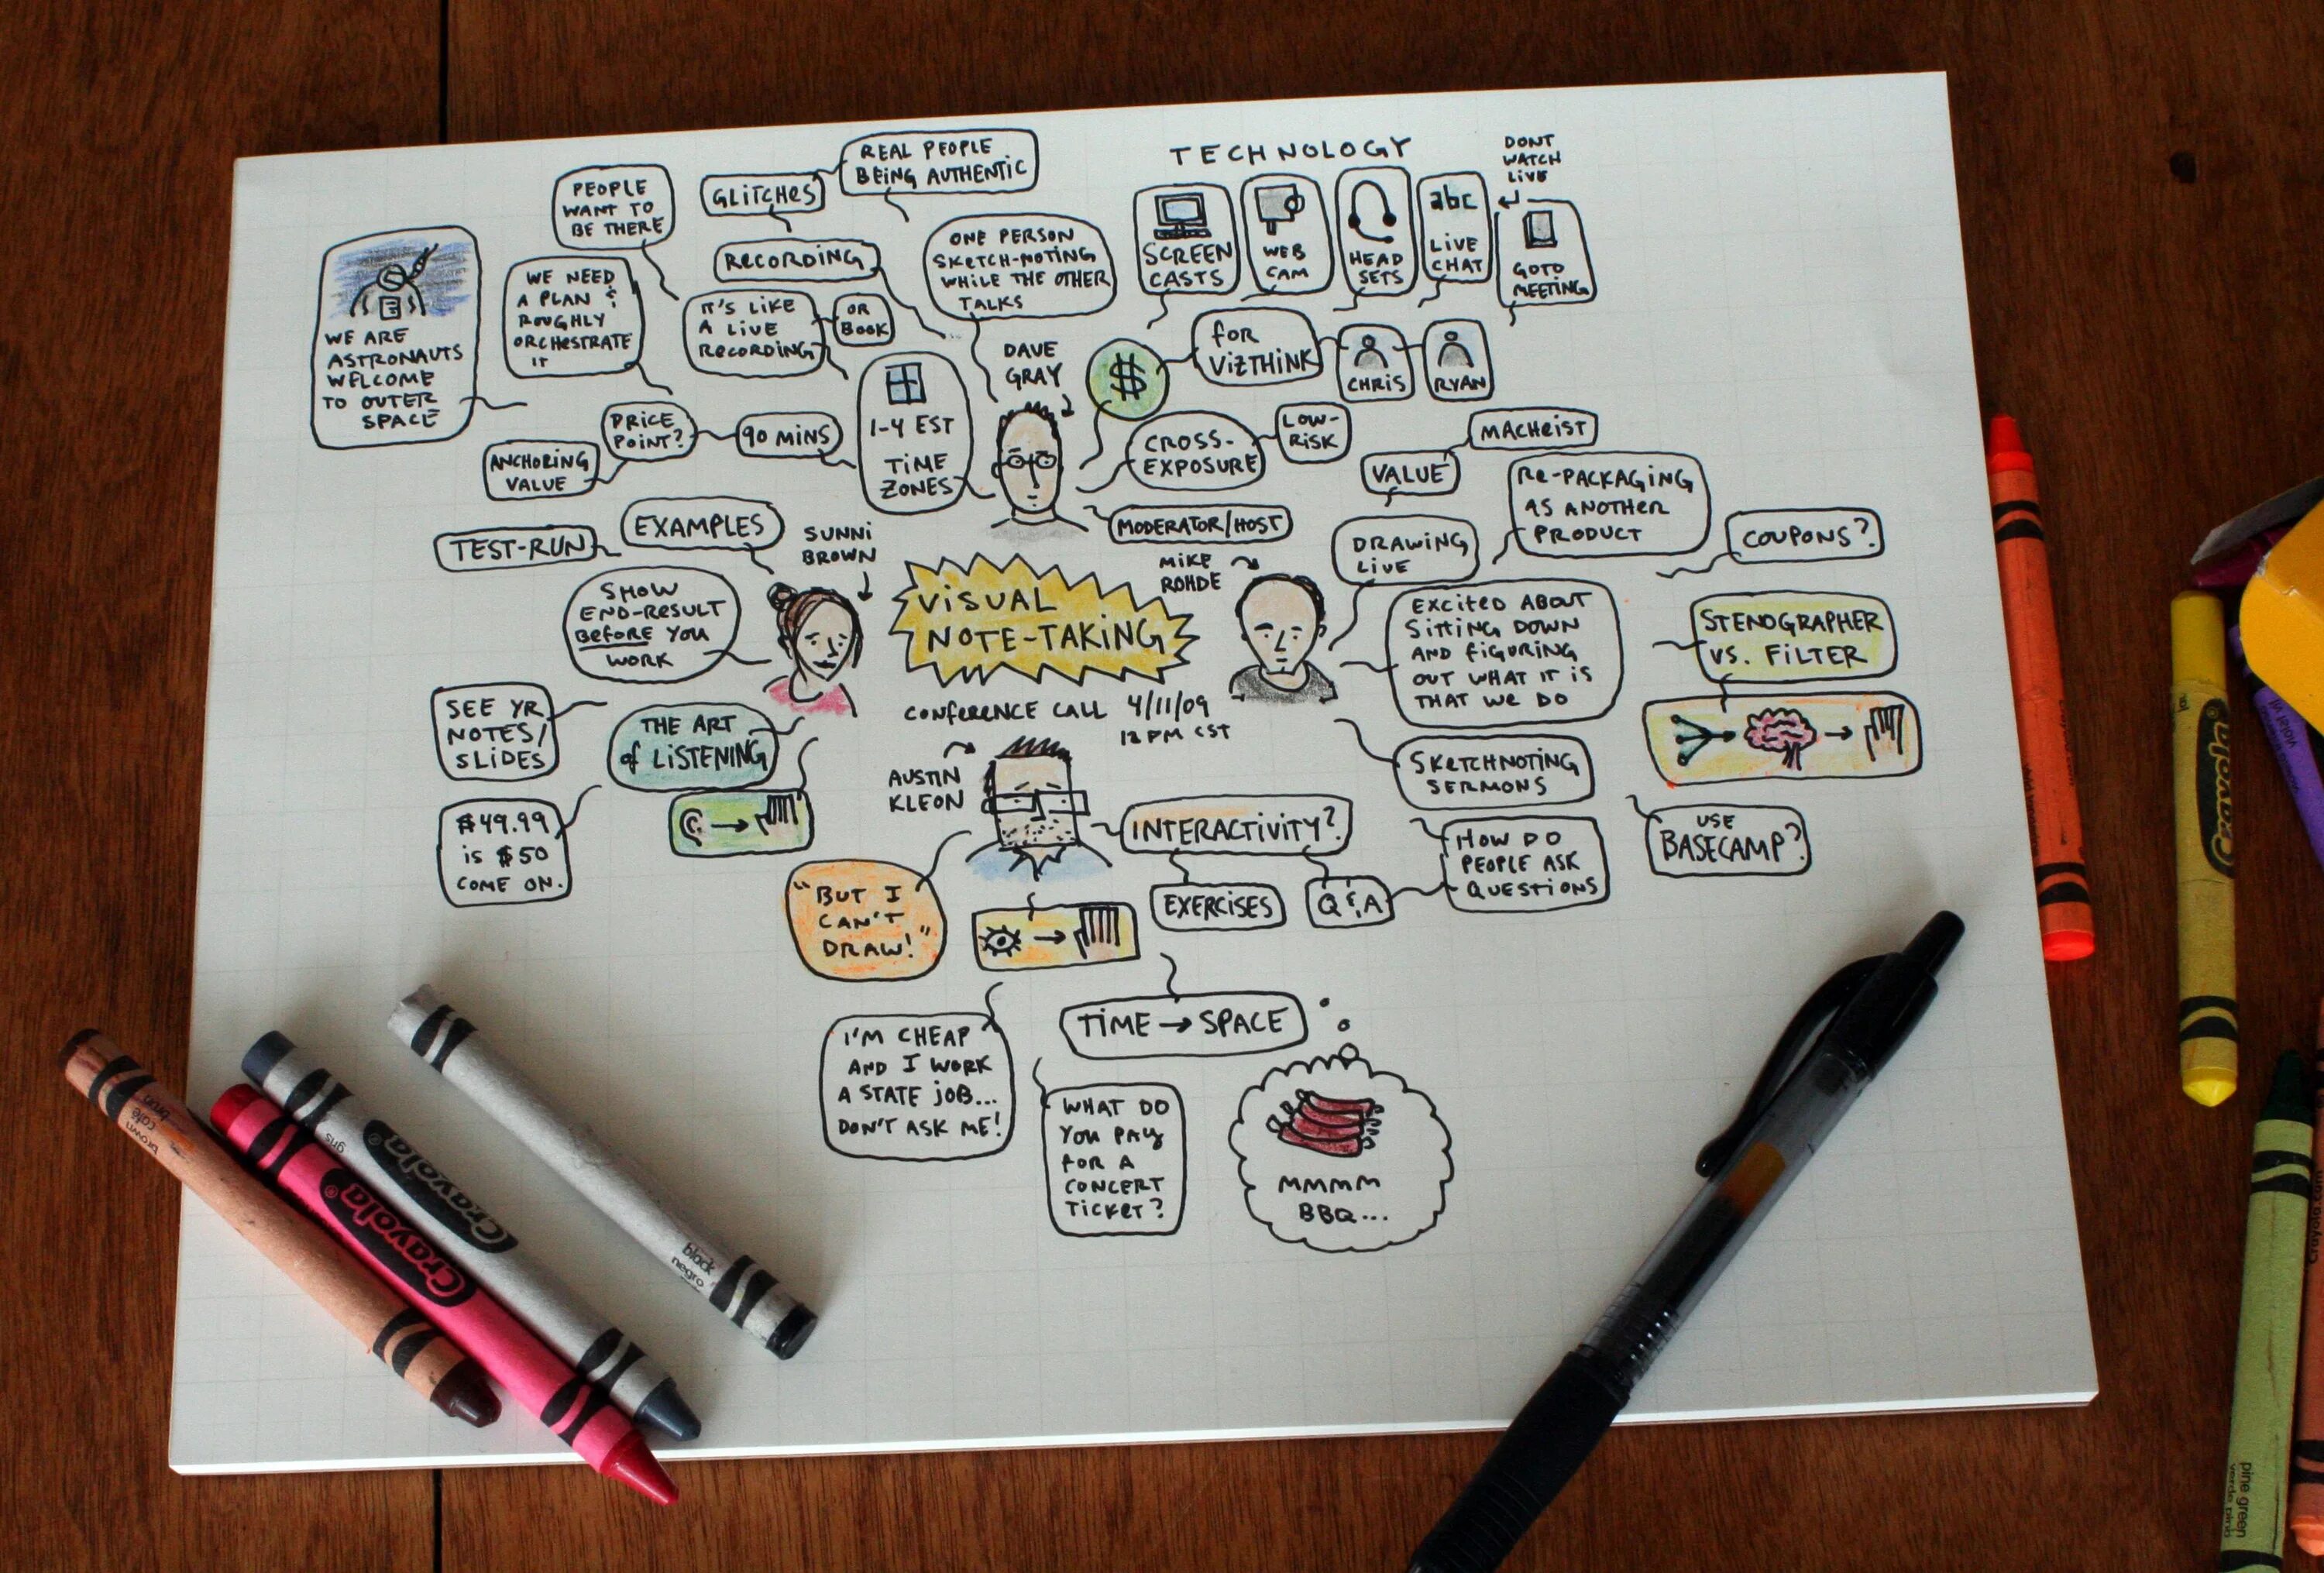 REAL PEOPLE
BEING AUTHENTIC
GLITCHES
PEOPLE
WANT TO
BE THERE
RECORDING
WE NEED
A PLAN &
ROUGHLY
ORCHESTRATE
IT
IT'S LIKE
A LIVE
RECORDING
OR
BOOK
ONE PERSON
SKETCH-NOTING
WHILE THE OTHER
TALKS
WE ARE
ASTRONAUTS
WELCOME
TO OUTER
SPACE
TECHNOLOGY
SCREEN
CASTS
WEB
CAM
HEAD
SETS
abc
LIVE
CHAT
DONT
WATCH
LIVE
GOTO
MEETING
DAVE
GRAY
$
FOR
VIZTHINK
CHRIS
RYAN
PRICE
POINT?
90 MINS
1-4 EST
TIME
ZONES
ANCHORING
VALUE
CROSS-
EXPOSURE
LOW-
RISK
MODERATOR/HOST
MACHEIST
VALUE
RE-PACKAGING
AS ANOTHER
PRODUCT
COUPONS?
DRAWING
LIVE
EXAMPLES
TEST-RUN
SUNNI
BROWN
SHOW
END-RESULT
BEFORE YOU
WORK
VISUAL
NOTE-TAKING
CONFERENCE CALL 4/11/09
12 PM CST
MIKE
ROHDE
EXCITED ABOUT
SITTING DOWN
AND FIGURING
OUT WHAT IT IS
THAT WE DO
STENOGRAPHER
VS. FILTER
SEE YR
NOTES/
SLIDES
THE ART
of LISTENING
$49.99
is $50
COME ON.
AUSTIN
KLEON
SKETCHNOTING
SERMONS
INTERACTIVITY?
EXERCISES
Q & A
HOW DO
PEOPLE ASK
QUESTIONS
USE
BASECAMP?
"BUT I
CAN'T
DRAW!"
I'M CHEAP
AND I WORK
A STATE JOB...
DON'T ASK ME!
TIME → SPACE
WHAT DO
YOU PAY
FOR A
CONCERT
TICKET?
MMMM
BBQ...
brown
café
brun
Crayola
gris
Crayola
black
negro
Crayola
pine green